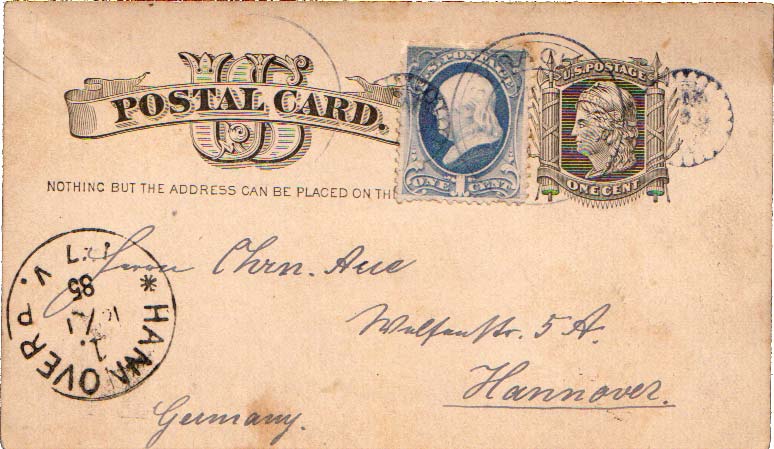 US
POSTAL CARD.
NOTHING BUT THE ADDRESS CAN BE PLACED ON TH
U.S. POSTAGE
ONE 1 CENT
U.S. POSTAGE
ONE CENT
Herrn Chrn. Aue
Welfenstr. 5 A.
Hannover.
Germany.
* HANNOVER P. V.
85